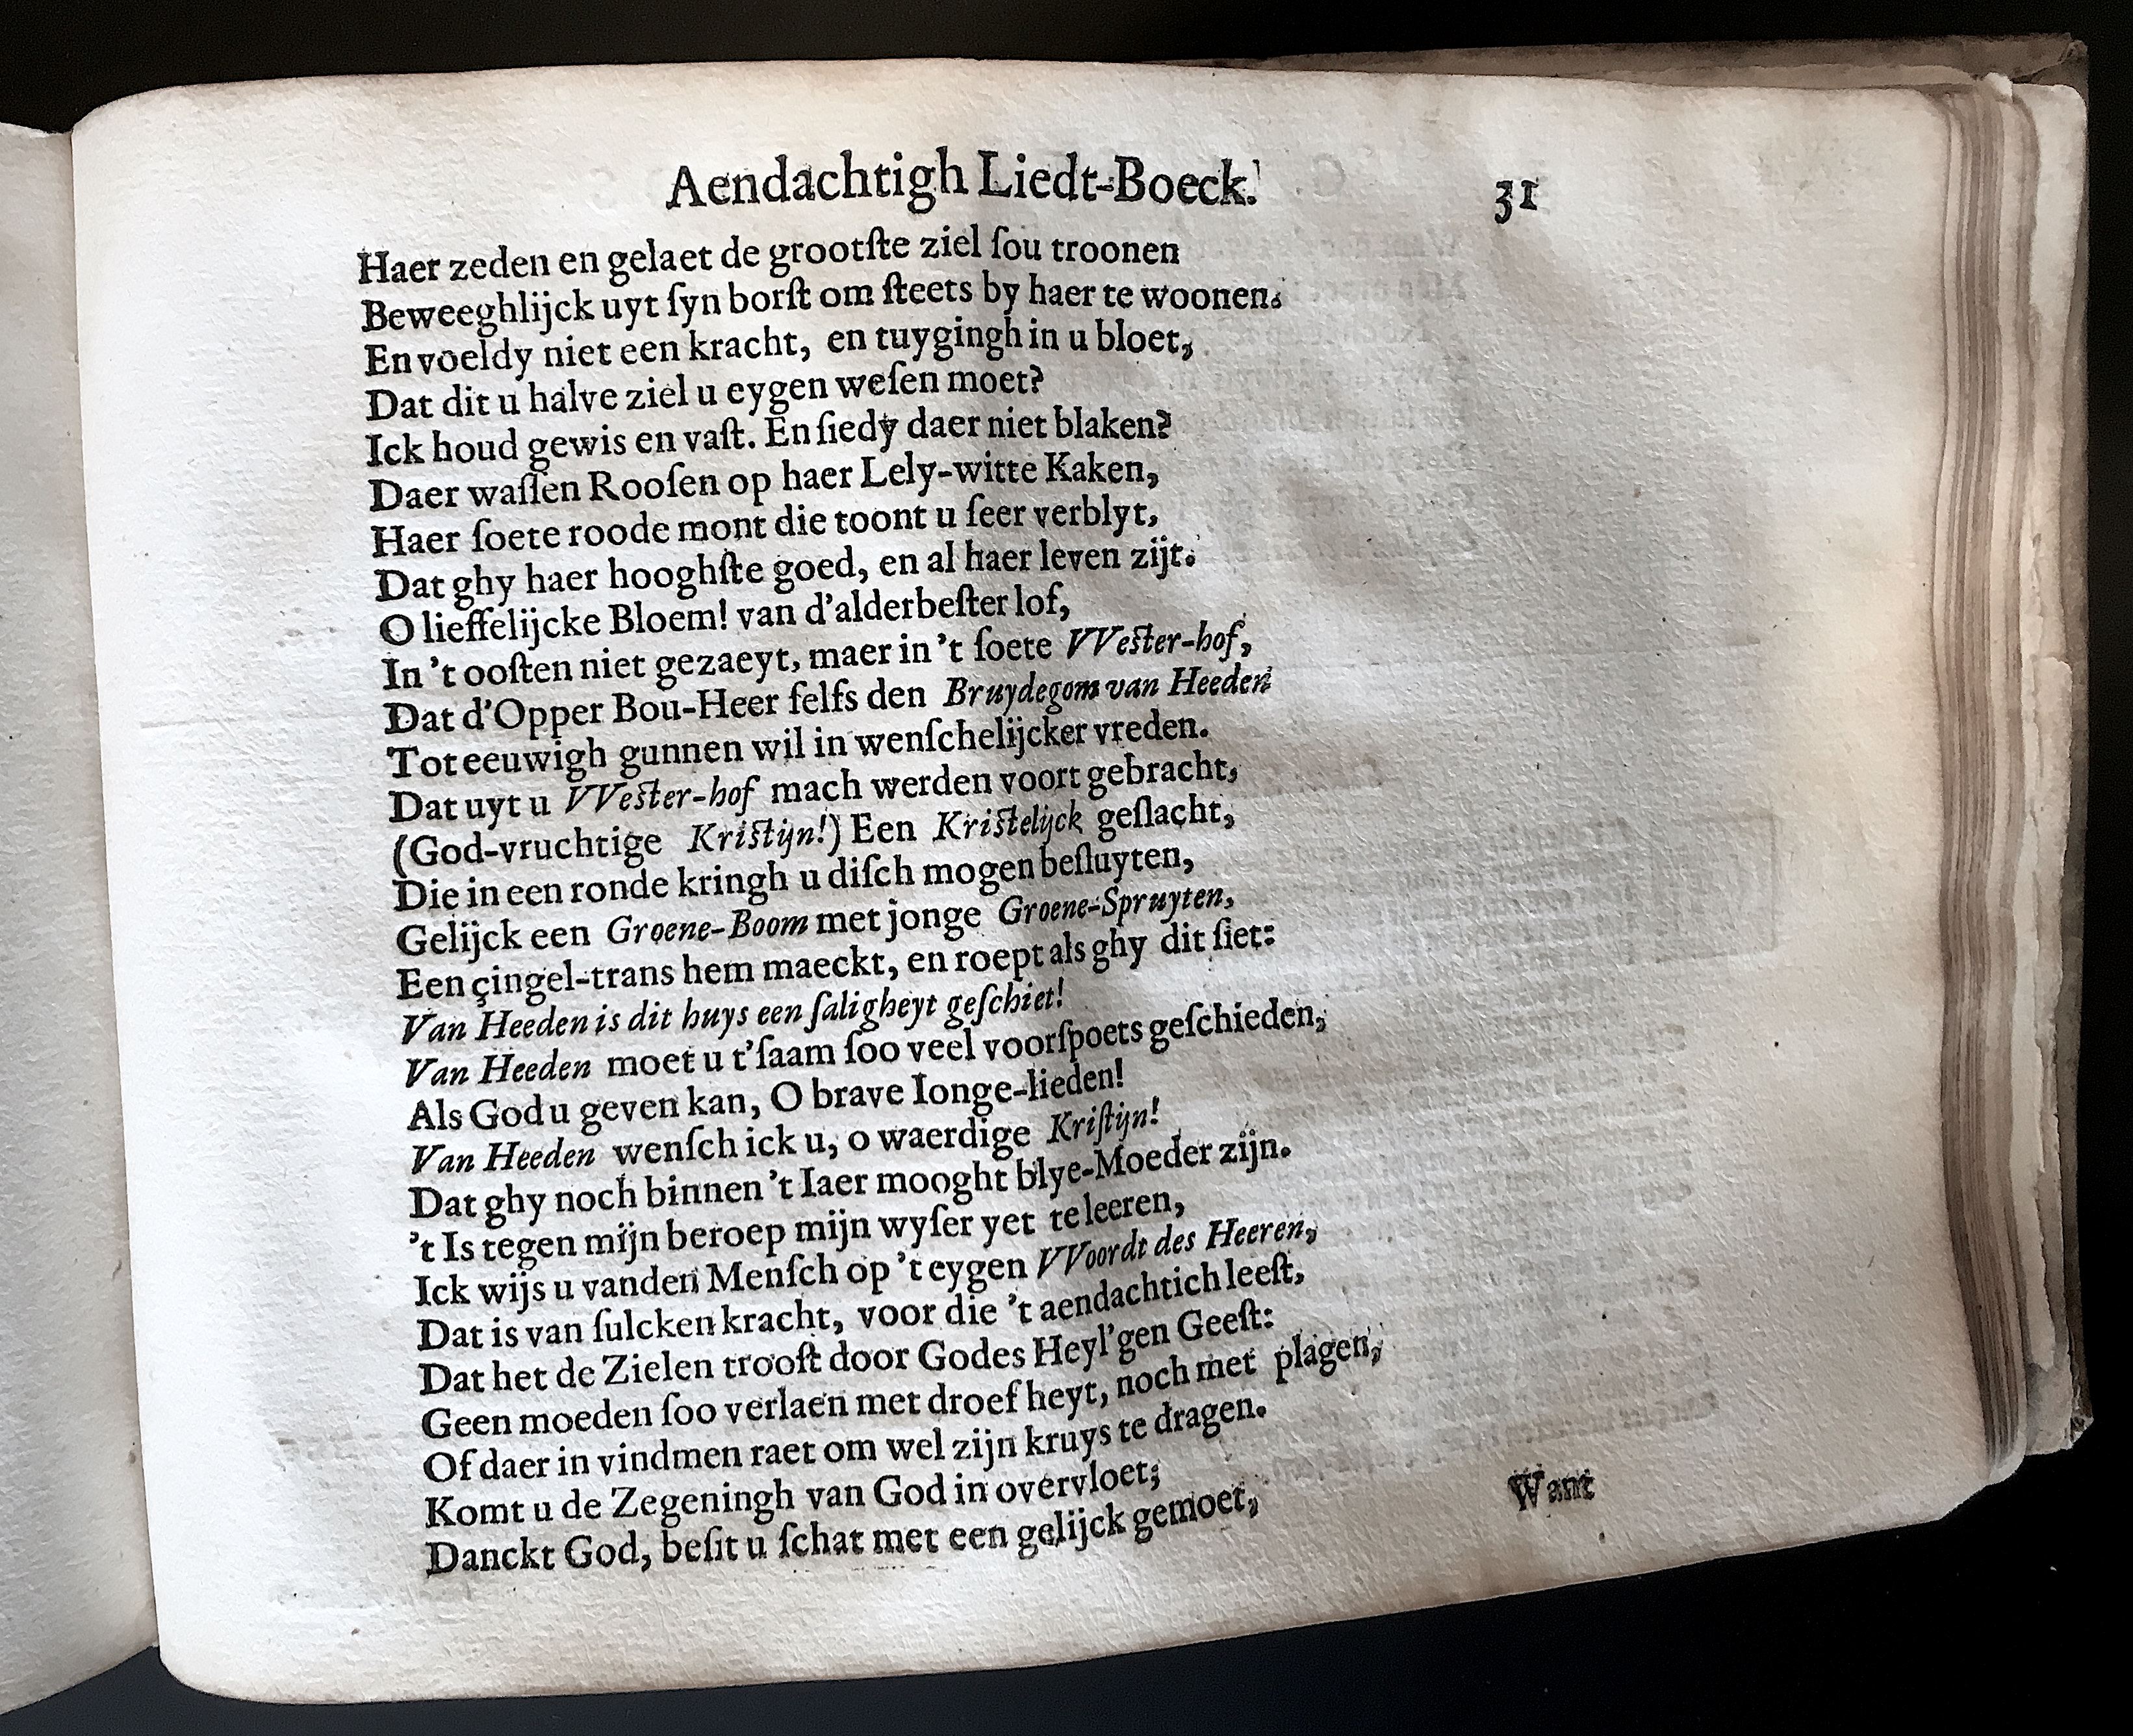 Aendachtigh Liedt-Boeck. 31
Haer zeden en gelaet de grootſte ziel ſou troonen
Beweeghlijck uyt ſyn borſt om ſteets by haer te woonen.
En voeldy niet een kracht, en tuygingh in u bloet,
Dat dit u halve ziel u eygen weſen moet?
Ick houd gewis en vaſt. En ſiedy daer niet blaken?
Daer waſſen Rooſen op haer Lely-witte Kaken,
Haer ſoete roode mont die toont u ſeer verblyt,
Dat ghy haer hooghſte goed, en al haer leven zijt.
O lieffelijcke Bloem! van d'alderbeſter lof,
In 't ooſten niet gezaeyt, maer in 't ſoete VVeſter-hof,
Dat d'Opper Bou-Heer ſelfs den Bruydegom van Heeden
Tot eeuwigh gunnen wil in wenſchelijcker vreden.
Dat uyt u VVeſter-hof mach werden voort gebracht,
(God-vruchtige Kriſtijn!) Een Kriſtelijck geſlacht,
Die in een ronde kringh u diſch mogen beſluyten,
Gelijck een Groene-Boom met jonge Groene-Spruyten,
Een çingel-trans hem maeckt, en roept als ghy dit ſiet:
Van Heeden is dit huys een ſaligheyt geſchiet!
Van Heeden moet u t'ſaam ſoo veel voorſpoets geſchieden,
Als God u geven kan, O brave Ionge-lieden!
Van Heeden wenſch ick u, o waerdige Kriſtijn!
Dat ghy noch binnen 't Iaer mooght blye-Moeder zijn.
't Is tegen mijn beroep mijn wyſer yet te leeren,
Ick wijs u vanden Menſch op 't eygen VVoordt des Heeren,
Dat is van ſulcken kracht, voor die 't aendachtich leeſt,
Dat het de Zielen trooſt door Godes Heyl'gen Geeſt:
Geen moeden ſoo verlaen met droef heyt, noch met plagen,
Of daer in vindmen raet om wel zijn kruys te dragen.
Komt u de Zegeningh van God in overvloet;
Danckt God, beſit u ſchat met een gelijck gemoet,
Want